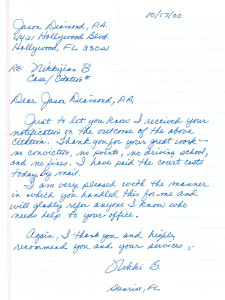 10/17/00
Jason Diamond, P.A.
4421 Hollywood Blvd.
Hollywood, FL 33021
RE: Nikkijian B
Case/Citation #
Dear Jason Diamond, PA,
Just to let you know I received your
notification on the outcome of the above
Citation. Thank you for your great work -
no conviction, no points, no driving school,
and no fines. I have paid the court costs
today by mail.
I am very pleased with the manner
in which you handled this for me and
will gladly refer anyone I know who
needs help to your office.
Again, I thank you and highly
recommend you and your services,
Nikki B.
Sunrise, FL